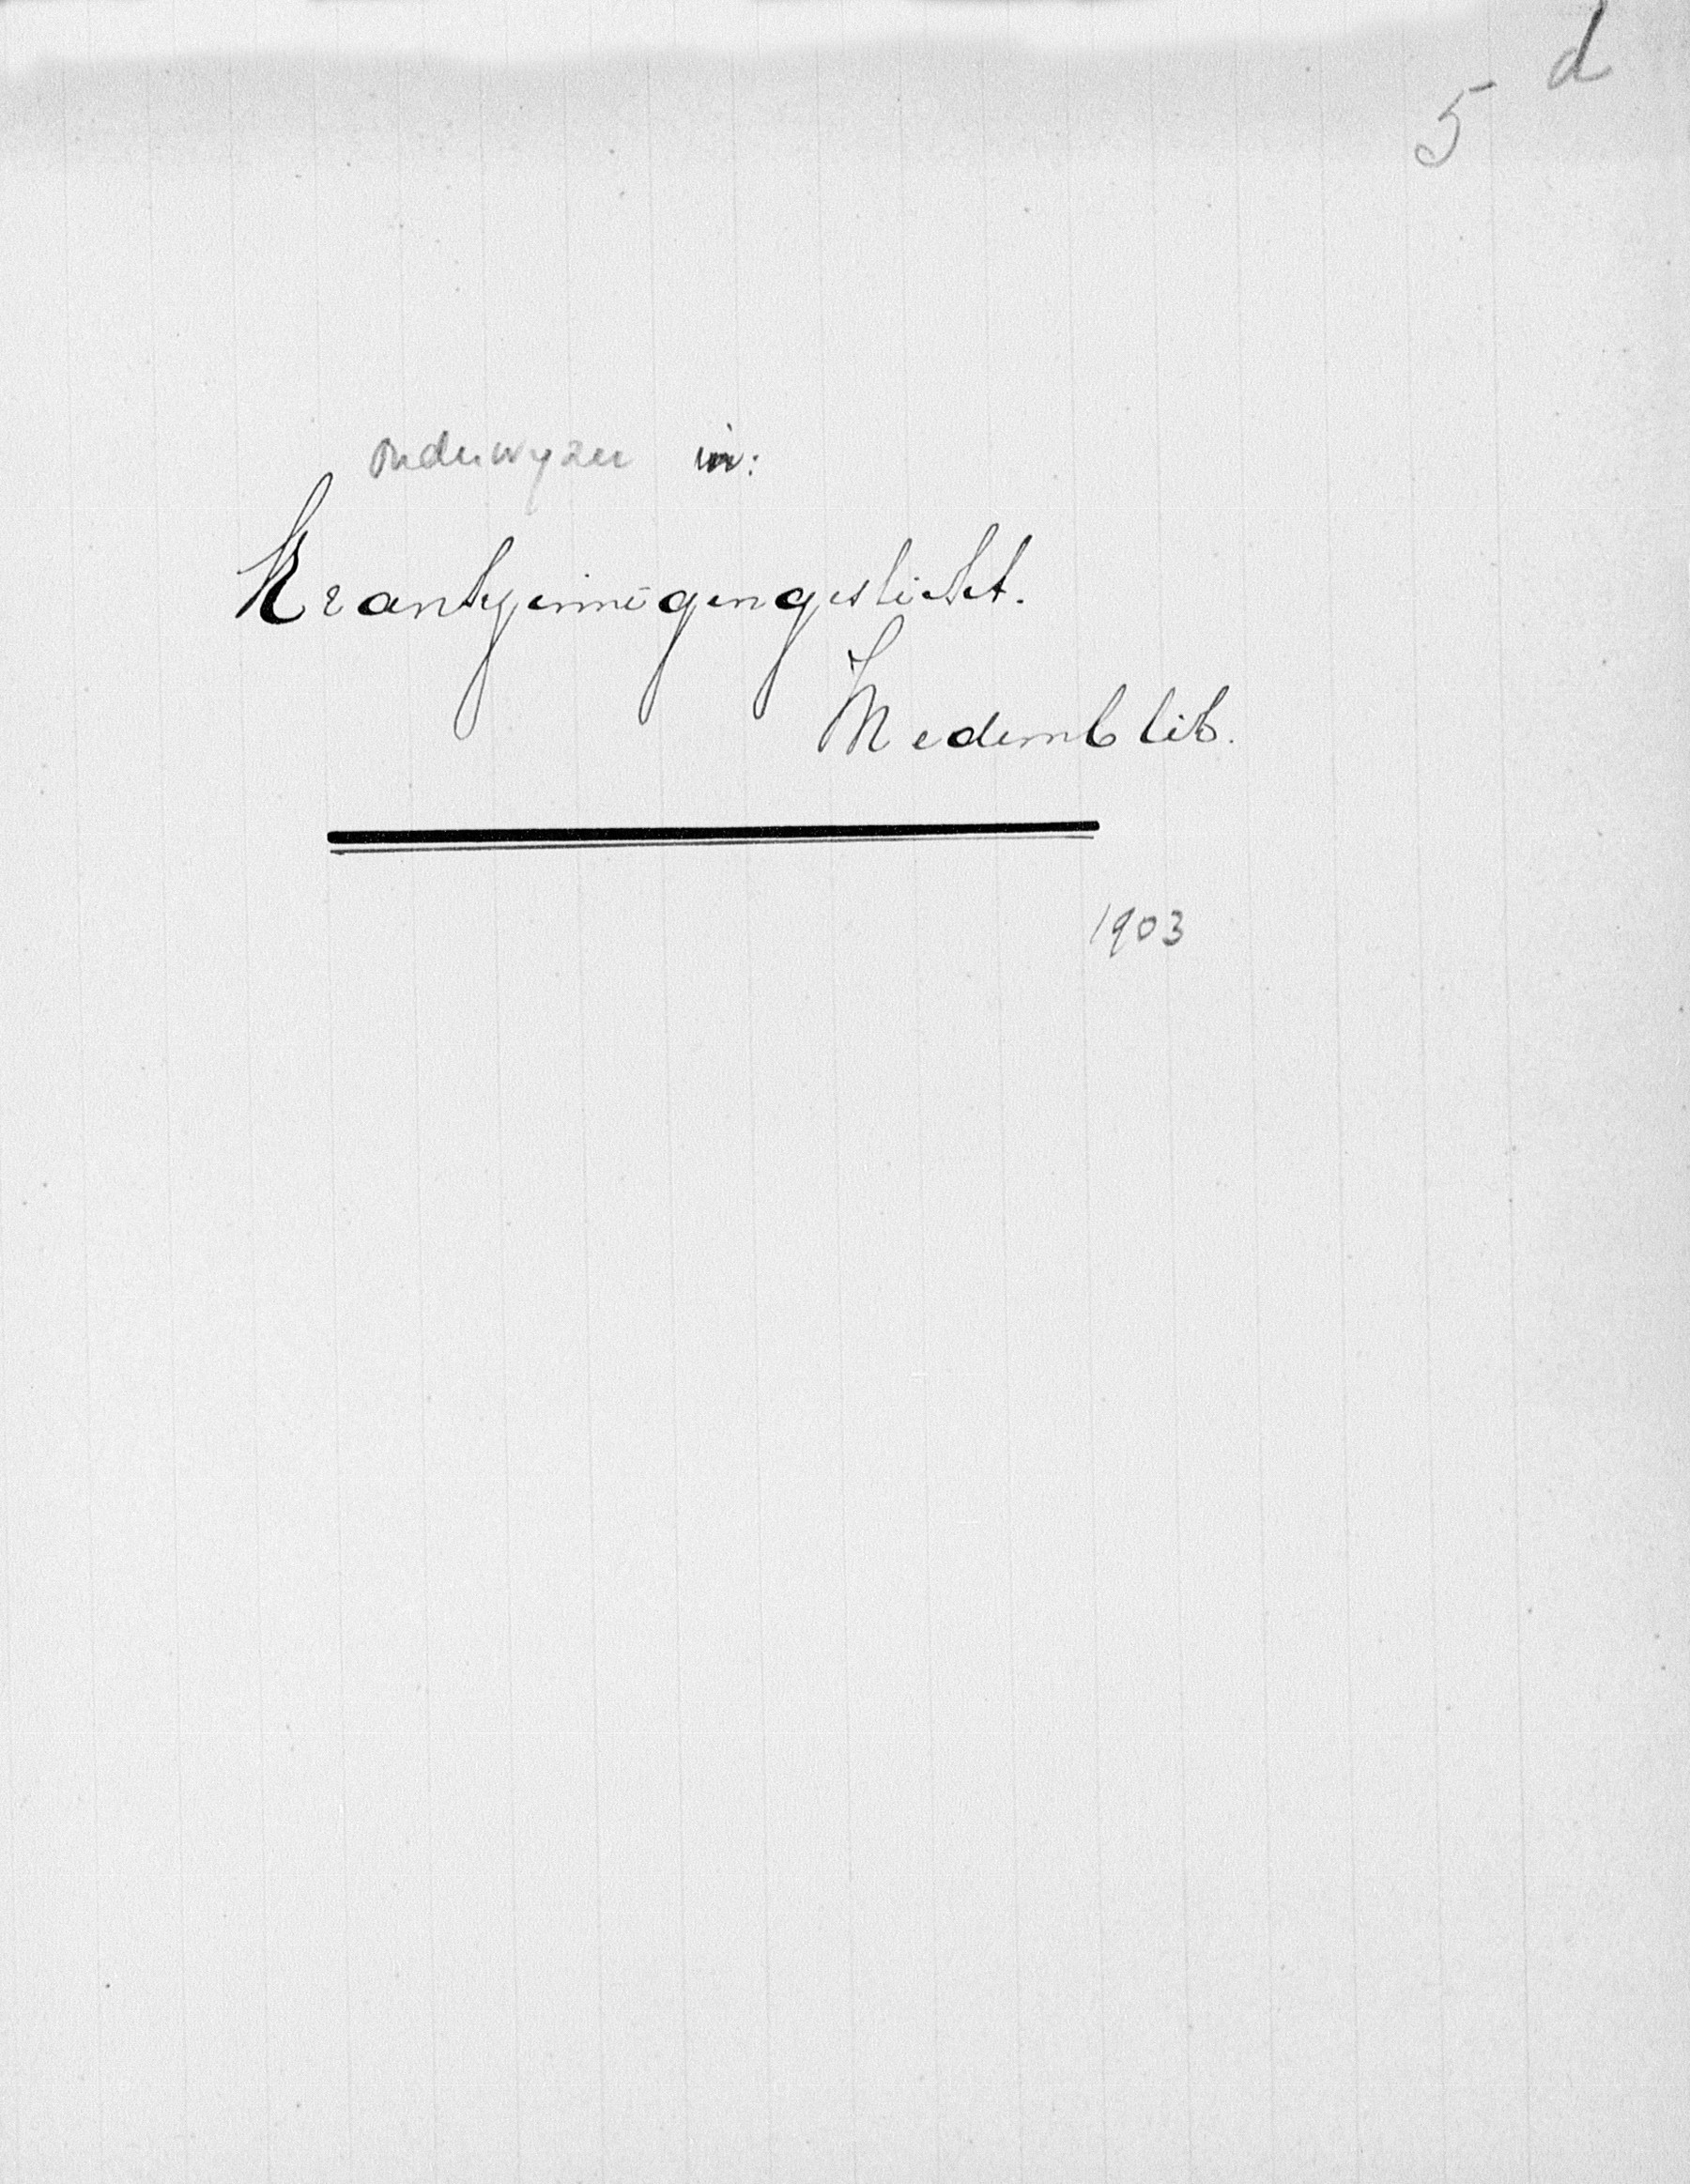 5 d
onderwyzer in:
Krankzinnigengesticht.
Medemblik.
1903